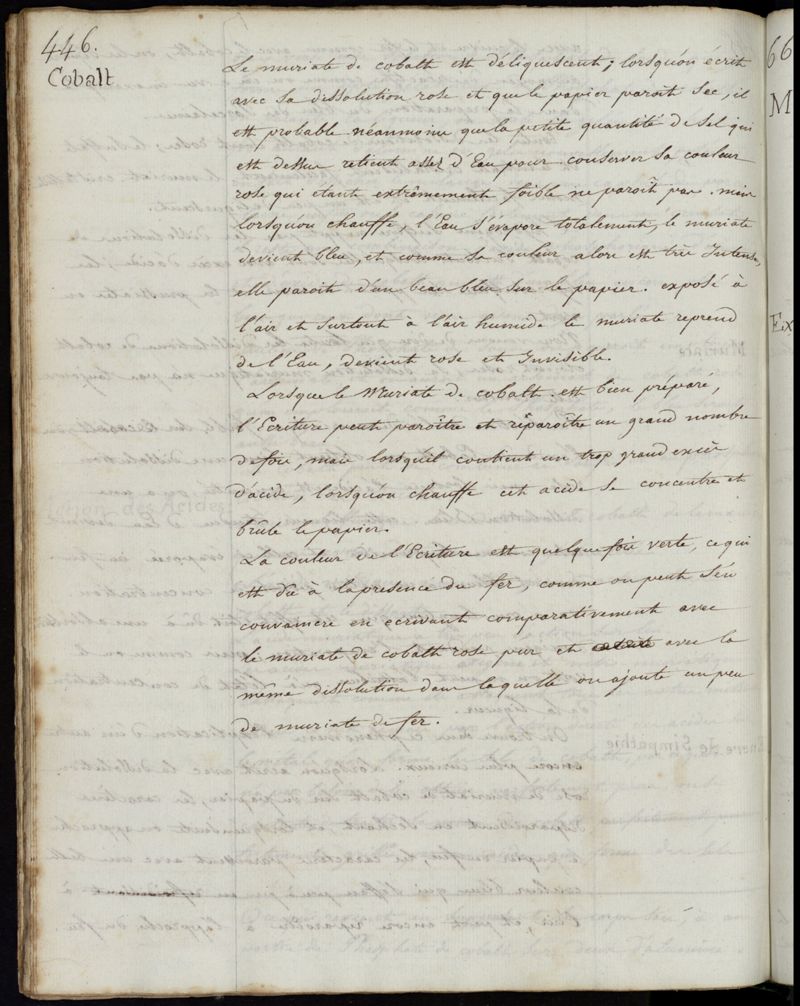 446.
Cobalt
Le muriate de cobalt est déliquescent; lorsqu'on écrit
avec sa dissolution rose et que le papier paroit sec, il
est probable néanmoins que la petite quantité de sel qui
est dessus retient assez d'Eau pour conserver sa couleur
rose qui etant extrêmement foible ne paroît pas. mais
lorsqu'on chauffe, l'Eau s'évapore totalement, le muriate
devient bleu, et comme sa couleur alors est très Intense,
elle paroit d'un beau bleu sur le papier. exposé à
l'air et surtout à l'air humide le muriate reprend
de l'Eau, devient rose et Invisible.
Lorsque le Muriate de cobalt est bien préparé,
l'Ecriture peut paroître et réparoître un grand nombre
de fois, mais lorsqu'il contient un trop grand excès
d'acide, lorsqu'on chauffe cet acide se concentre et
brûle le papier.
La couleur de l'Ecriture est quelque fois verte, ce qui
est dû à la presence du fer, comme on peut s'en
convaincre en ecrivant comparativement avec
le muriate de cobalt rose pur et avec la
même dissolution dans laquelle on ajoute un peu
de muriate de fer.
66
M
Ex